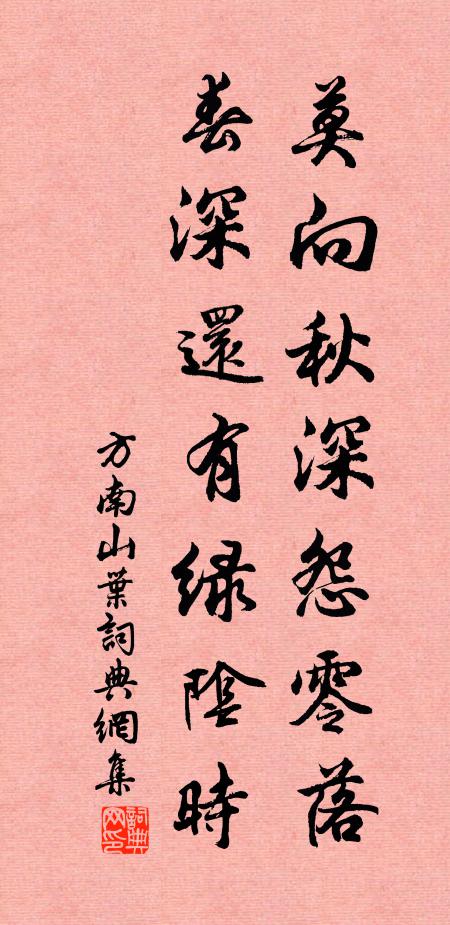 莫向秋深怨零落
春深還有綠陰時
方南山葉詞典網集
詞典網印